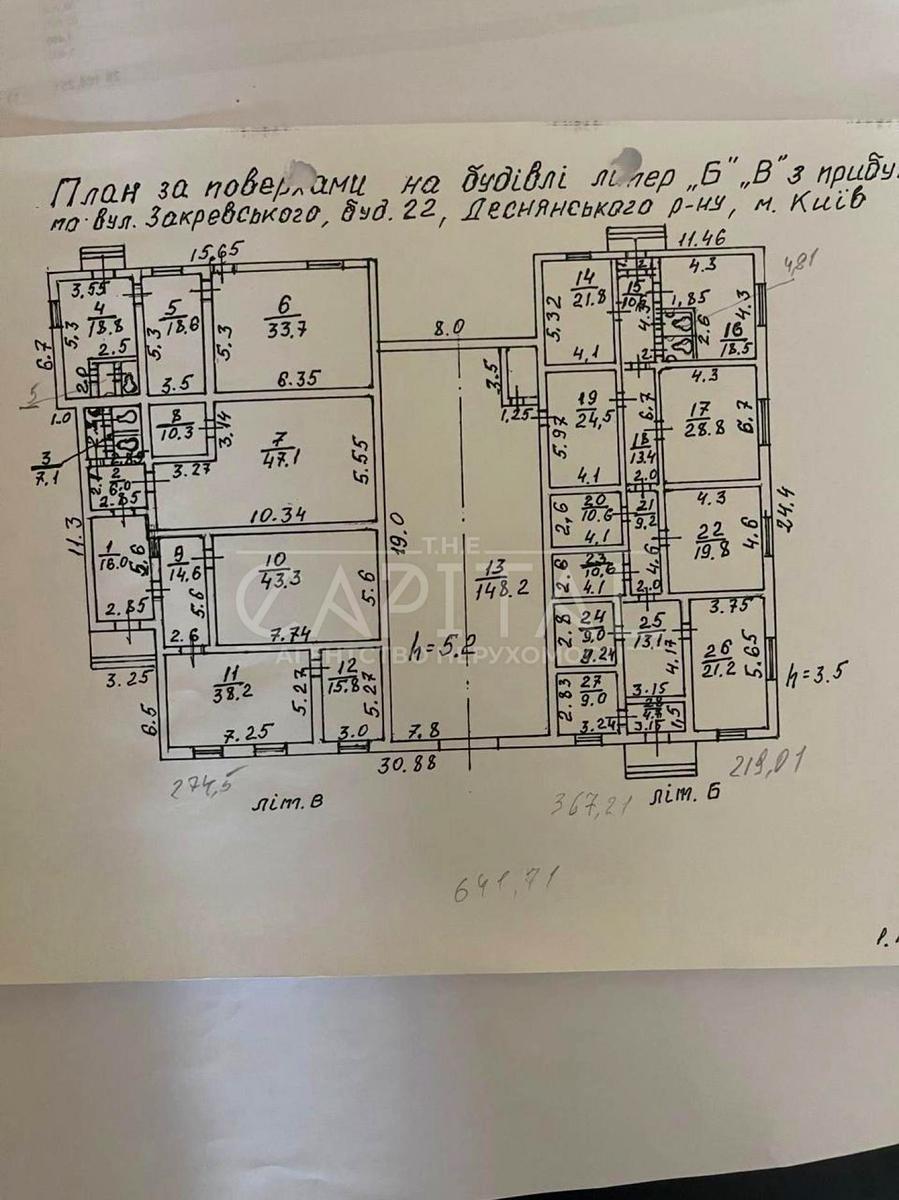 План за поверхами на будівлі літер „Б" „В" з прибу
по вул. Закревського, буд. 22, Деснянського р-ну, м. Київ
15,65
11.46
3,55
4
18.8
5,3
2.5
2.0
5
6.7
5
18,6
5,3
3.5
6
33,7
5.3
6.35
8.0
14
21.8
5,32
4,1
15
4.3
1,85
2.6
4,81
4.3
16
18.5
3.5
1,25
1.0
3
7,1
8
10.3
3,14
3.27
7
47.1
5.55
10.34
2
6.0
2.85
19
24,5
5.97
4.1
6.7
18
13.4
2.0
4.3
17
28.8
6,7
24,4
11.3
1
16.0
5,6
2.85
3.25
9
14.6
5.6
2.6
10
43.3
5.6
7.74
19.0
13
148.2
h=5.2
20
10.6
2,6
4.1
21
9,2
4.6
2.0
23
10,6
2.6
4.1
4.3
22
19,8
4.6
THE
CAPITAL
АГЕНТСТВО НЕРУХОМО
24
9.0
2.8
25
13,1
4.17
3.15
3.75
26
21.2
5.65
h=3.5
6.5
11
38,2
5.27
7.25
12
15.8
5.27
3.0
7.8
27
9.0
2.83
3.24
1,5
3.15
30.88
274,5
літ. В
367,21
літ. Б
219,01
641,71